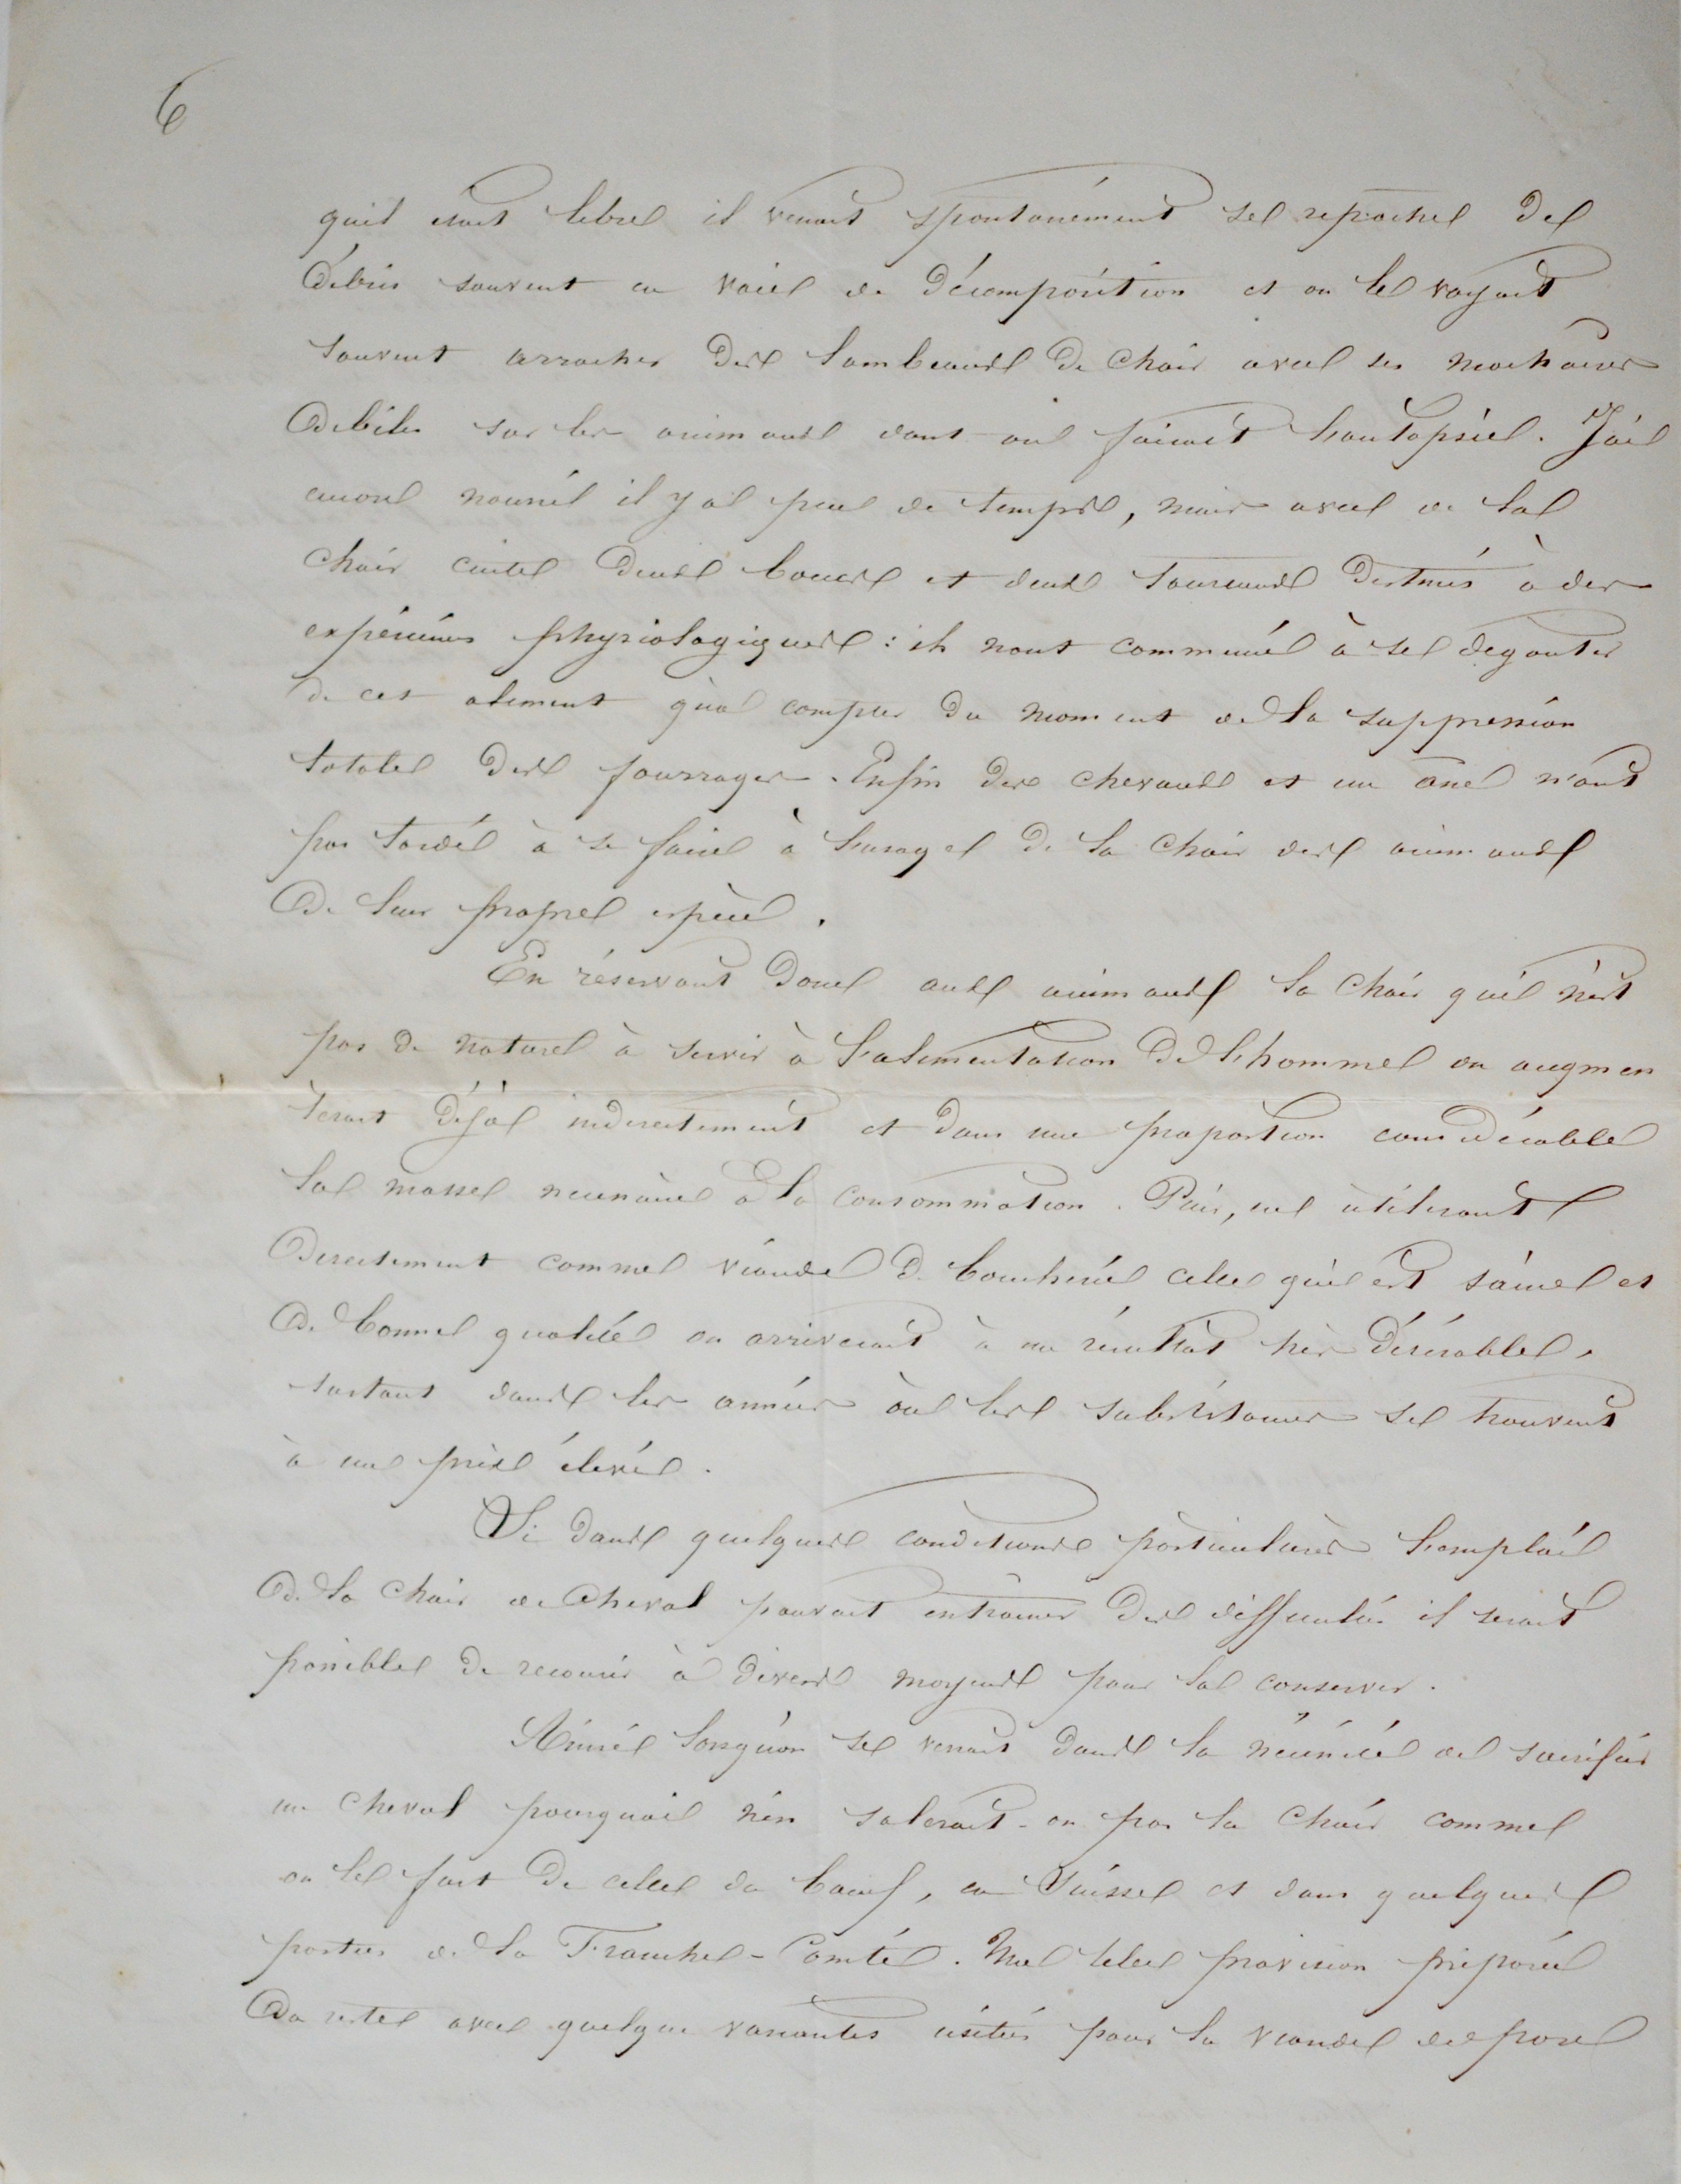 6
qu'il était libre il venait spontanément se repaître de
débris souvent en voie de décomposition et on le voyait
souvent arracher des lambeaux de chair avec ses machoires
débiles sur les animaux dont on faisait l'autopsie. J'ai
encore nourri il y a peu de temps, mais avec de la
chair cuite deux boucs et deux taureaux destinés à des
expériences physiologiques : ils n'ont commencé à se degouter
de cet aliment qu'à compter du moment de la suppression
totale des fourrages. Enfin des chevaux et un âne n'ont
pas tardé à se faire à l'usage de la chair des animaux
de leur propre espèce.
En réservant donc aux animaux la chair qui n'est
pas de nature à servir à l'alimentation de l'homme on augmen
terait déjà indirectement et dans une proportion considérable
la masse nécessaire à la consommation. Puis, en utilisant
directement comme viande de boucherie celle qui est saine et
de bonne qualité on arriverait à un résultat très désirable,
surtout dans les années où les subsistances se trouvent
à un prix élevé.
Si dans quelques conditions particulières l'emploi
de la chair de cheval pouvait entraîner des difficultés il serait
possible de recourir à divers moyens pour la conserver.
Ainsi lorsqu'on se verrait dans la nécessité de sacrifier
un cheval pourquoi n'en salerait-on pas la chair comme
on le fait de celle du boeuf, en Suisse et dans quelques
parties de la Franche-Comté. Une telle provision préparée
du reste avec quelques variantes usitées pour la viande de porc